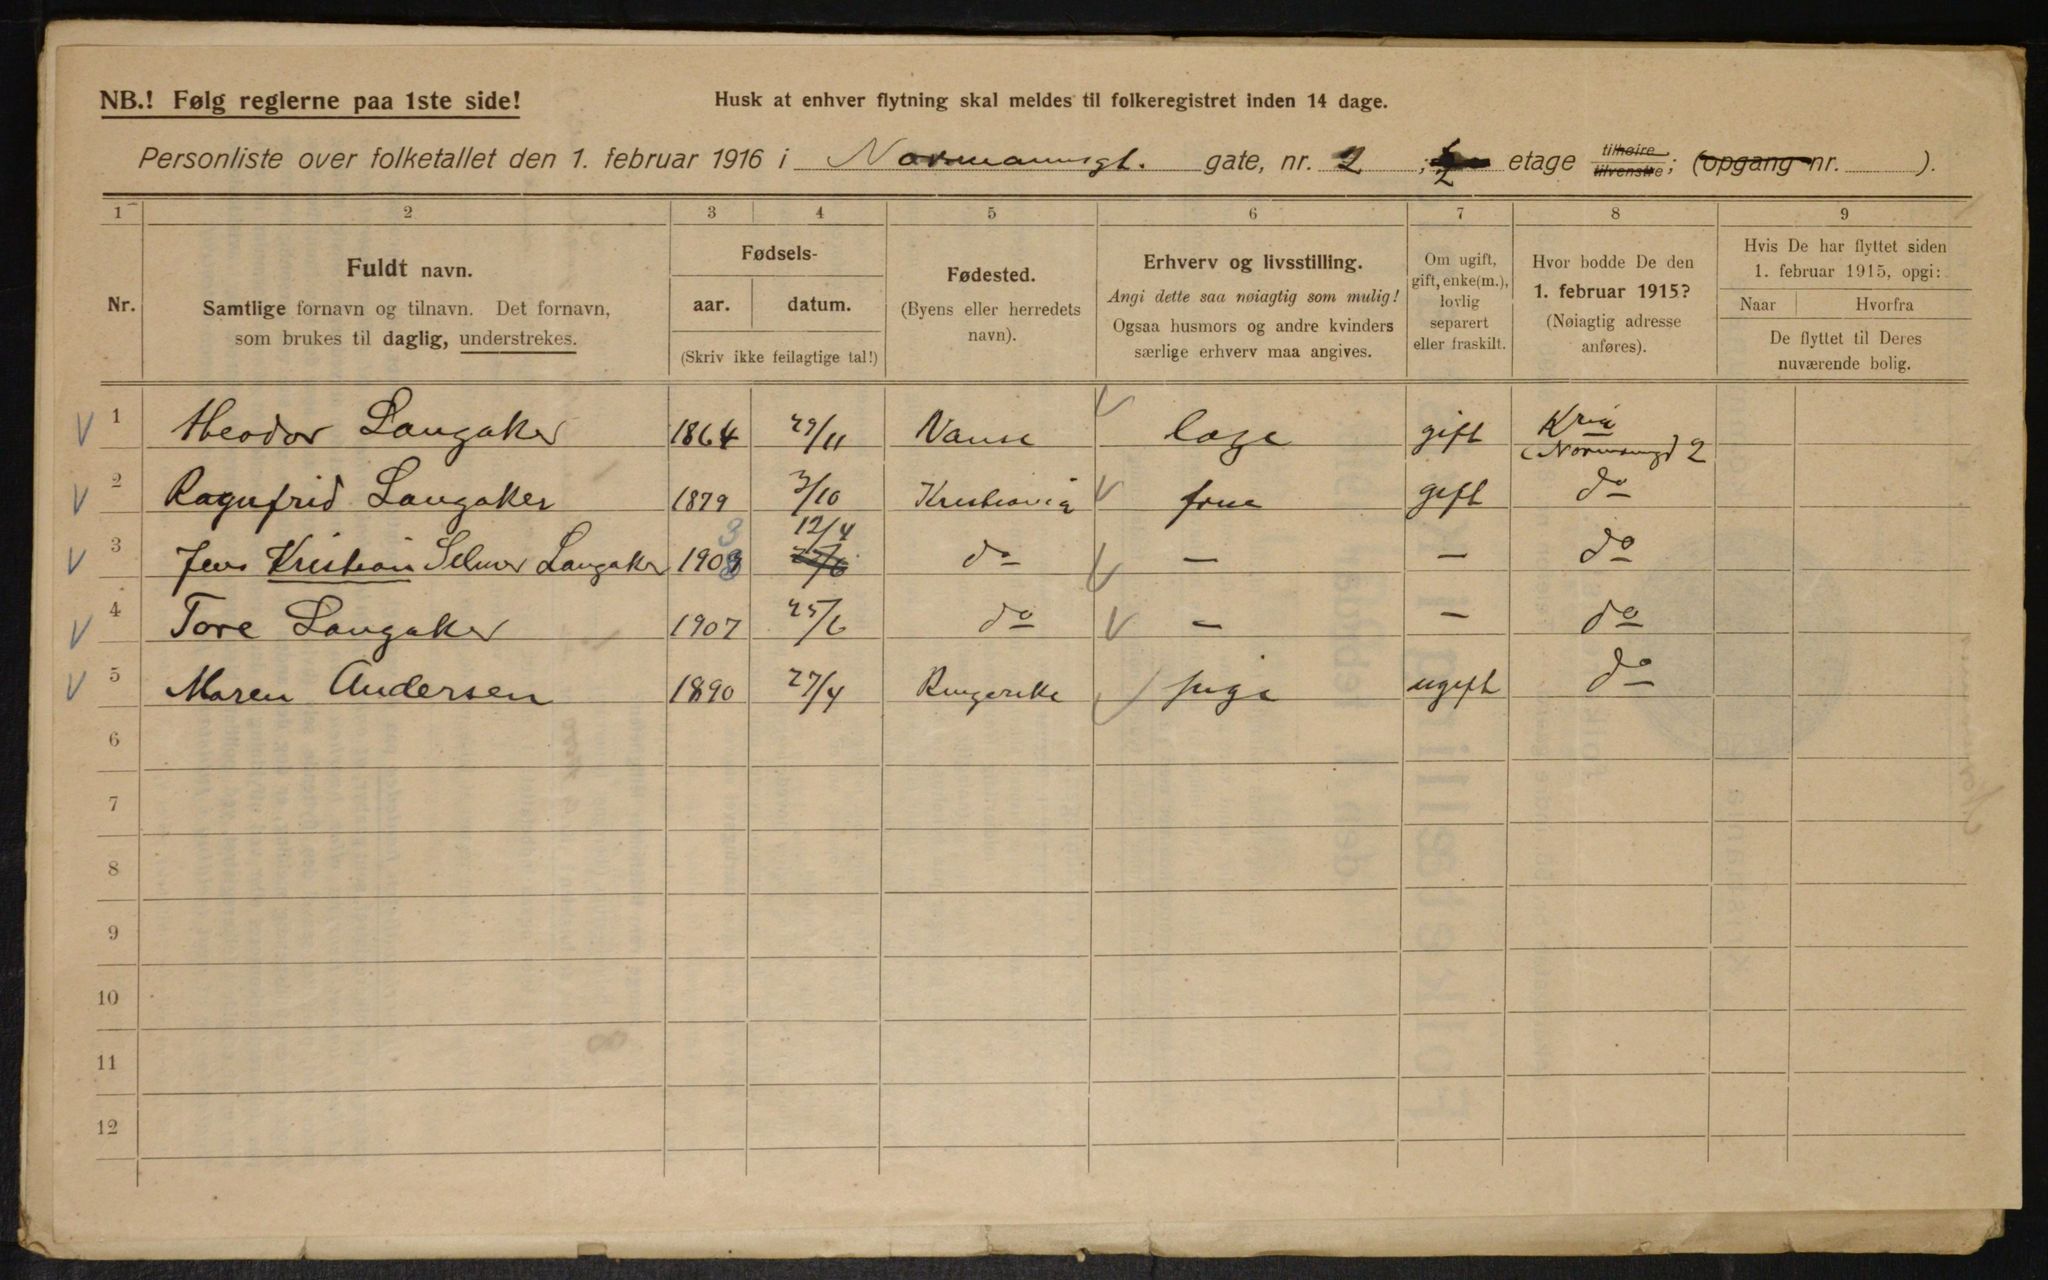 NB.! Følg reglerne paa 1ste side!
Husk at enhver flytning skal meldes til folkeregistret inden 14 dage.
Personliste over folketallet den 1. februar 1916 i Normannsgt. gate, nr. 2 ; 2 etage tilhøire tilvenstre; (opgang nr. ).
1 2 3 4 5 6 7 8 9
Nr.
Fuldt navn.
Samtlige fornavn og tilnavn. Det fornavn,
som brukes til daglig, understrekes.
Fødsels-
aar. datum.
(Skriv ikke feilagtige tal!)
Fødested.
(Byens eller herredets
navn).
Erhverv og livsstilling.
Angi dette saa nøiagtig som mulig!
Ogsaa husmors og andre kvinders
særlige erhverv maa angives.
Om ugift,
gift, enke(m.),
lovlig
separert
eller fraskilt.
Hvor bodde De den
1. februar 1915?
(Nøiagtig adresse
anføres).
Hvis De har flyttet siden
1. februar 1915, opgi:
Naar Hvorfra
De flyttet til Deres
nuværende bolig.
1 Theodor Langaker 1864 29/11 Vanse læge gift Kria (Normansgt 2
2 Ragnfrid Langaker 1879 3/10 Kristiania frue gift do
3 Jens Kristian Selmer Langaker 1903 12/4 do — — do
4 Tore Langaker 1907 25/6 do — — do
5 Maren Andersen 1890 27/4 Ringerike pige ugift do
6
7
8
9
10
11
12